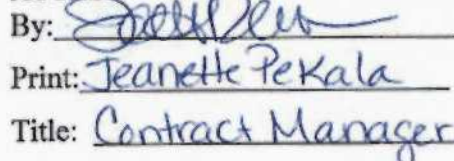 By:
Print: Jeanette Pekala
Title: Contract Manager